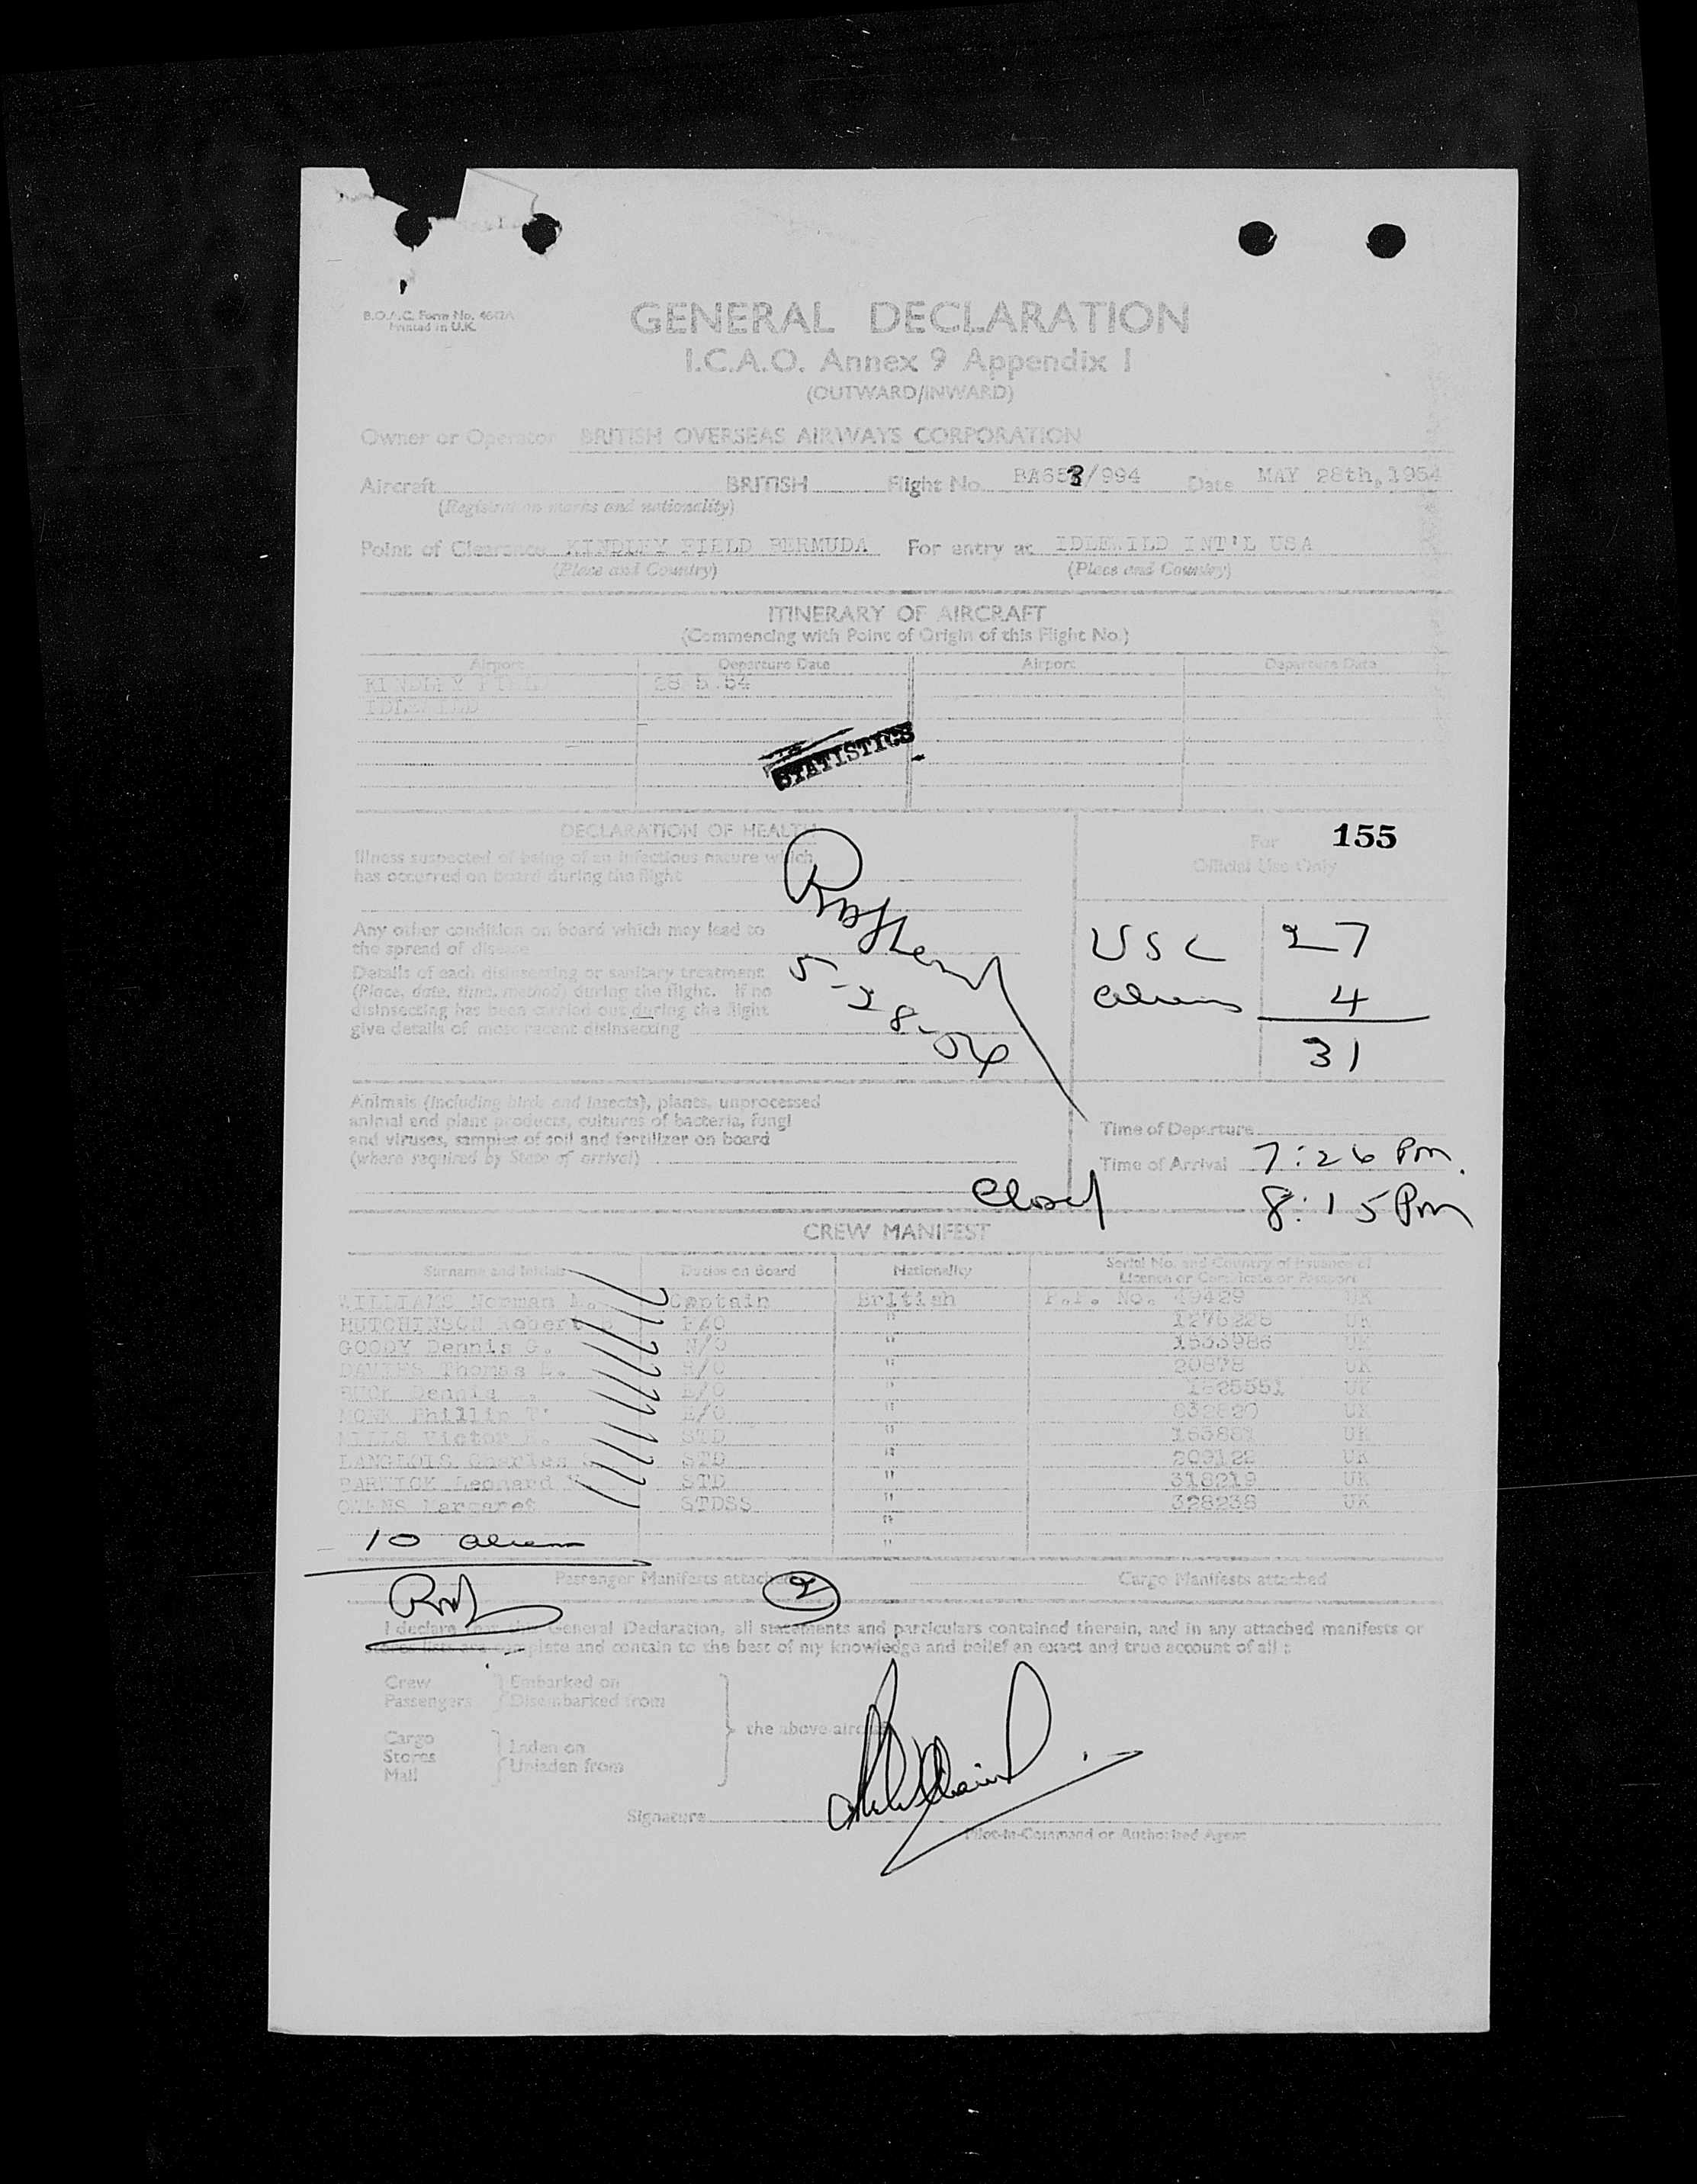 B.O.A.C. Form No. 4612A
Printed in U.K.
GENERAL DECLARATION
I.C.A.O. Annex 9 Appendix I
(OUTWARD/INWARD)
Owner or Operator BRITISH OVERSEAS AIRWAYS CORPORATION
Aircraft BRITISH Flight No. BA653/994 Date MAY 28th, 1954
(Registration marks and nationality)
Point of Clearance KINDLEY FIELD BERMUDA For entry at IDLEWILD INT'L USA
(Place and Country) (Place and Country)
ITINERARY OF AIRCRAFT
(Commencing with Point of Origin of this Flight No.)
Airport Departure Date Airport Departure Date
KINDLEY FIELD 28 5 54
IDLEWILD
STATISTICS
DECLARATION OF HEALTH
Illness suspected of being of an infectious nature which
has occurred on board during the flight
Any other condition on board which may lead to
the spread of disease
Details of each disinsecting or sanitary treatment
(Place, date, time, method) during the flight. If no
disinsecting has been carried out during the flight
give details of most recent disinsecting
5-28-54
For 155
Official Use Only
USC 27
aliens 4
31
Animals (including birds and insects), plants, unprocessed
animal and plant products, cultures of bacteria, fungi
and viruses, samples of soil and fertilizer on board
(where required by State of arrival)
Time of Departure
Time of Arrival 7:26 Pm.
Closed 8:15 Pm
CREW MANIFEST
Surname and Initials Duties on Board Nationality Serial No. and Country of Issuance of
Licence or Certificate or Passport
WILLIAMS Norman A. Captain British P.P. No. 49429 UK
HUTCHINSON Robert F/O " 1276228 UK
GOODY Dennis G. N/O " 1533986 UK
DAVIES Thomas E. R/O " 20878 UK
BUCK Dennis E/O " 1525551 UK
MONK Phillip T. E/O " 832820 UK
MILLS Victor STD " 163881 UK
LANGLOIS Charles STD " 209122 UK
BARWICK Leonard STD " 318219 UK
OWENS Margaret STDSS " 328238 UK
"
10 aliens "
Passenger Manifests attached 2 Cargo Manifests attached
I declare that this General Declaration, all statements and particulars contained therein, and in any attached manifests or
stores lists are complete and contain to the best of my knowledge and belief an exact and true account of all :
Crew Embarked on
Passengers Disembarked from
the above aircraft
Cargo
Stores Laden on
Mail Unladen from
Signature
Pilot-in-Command or Authorized Agent